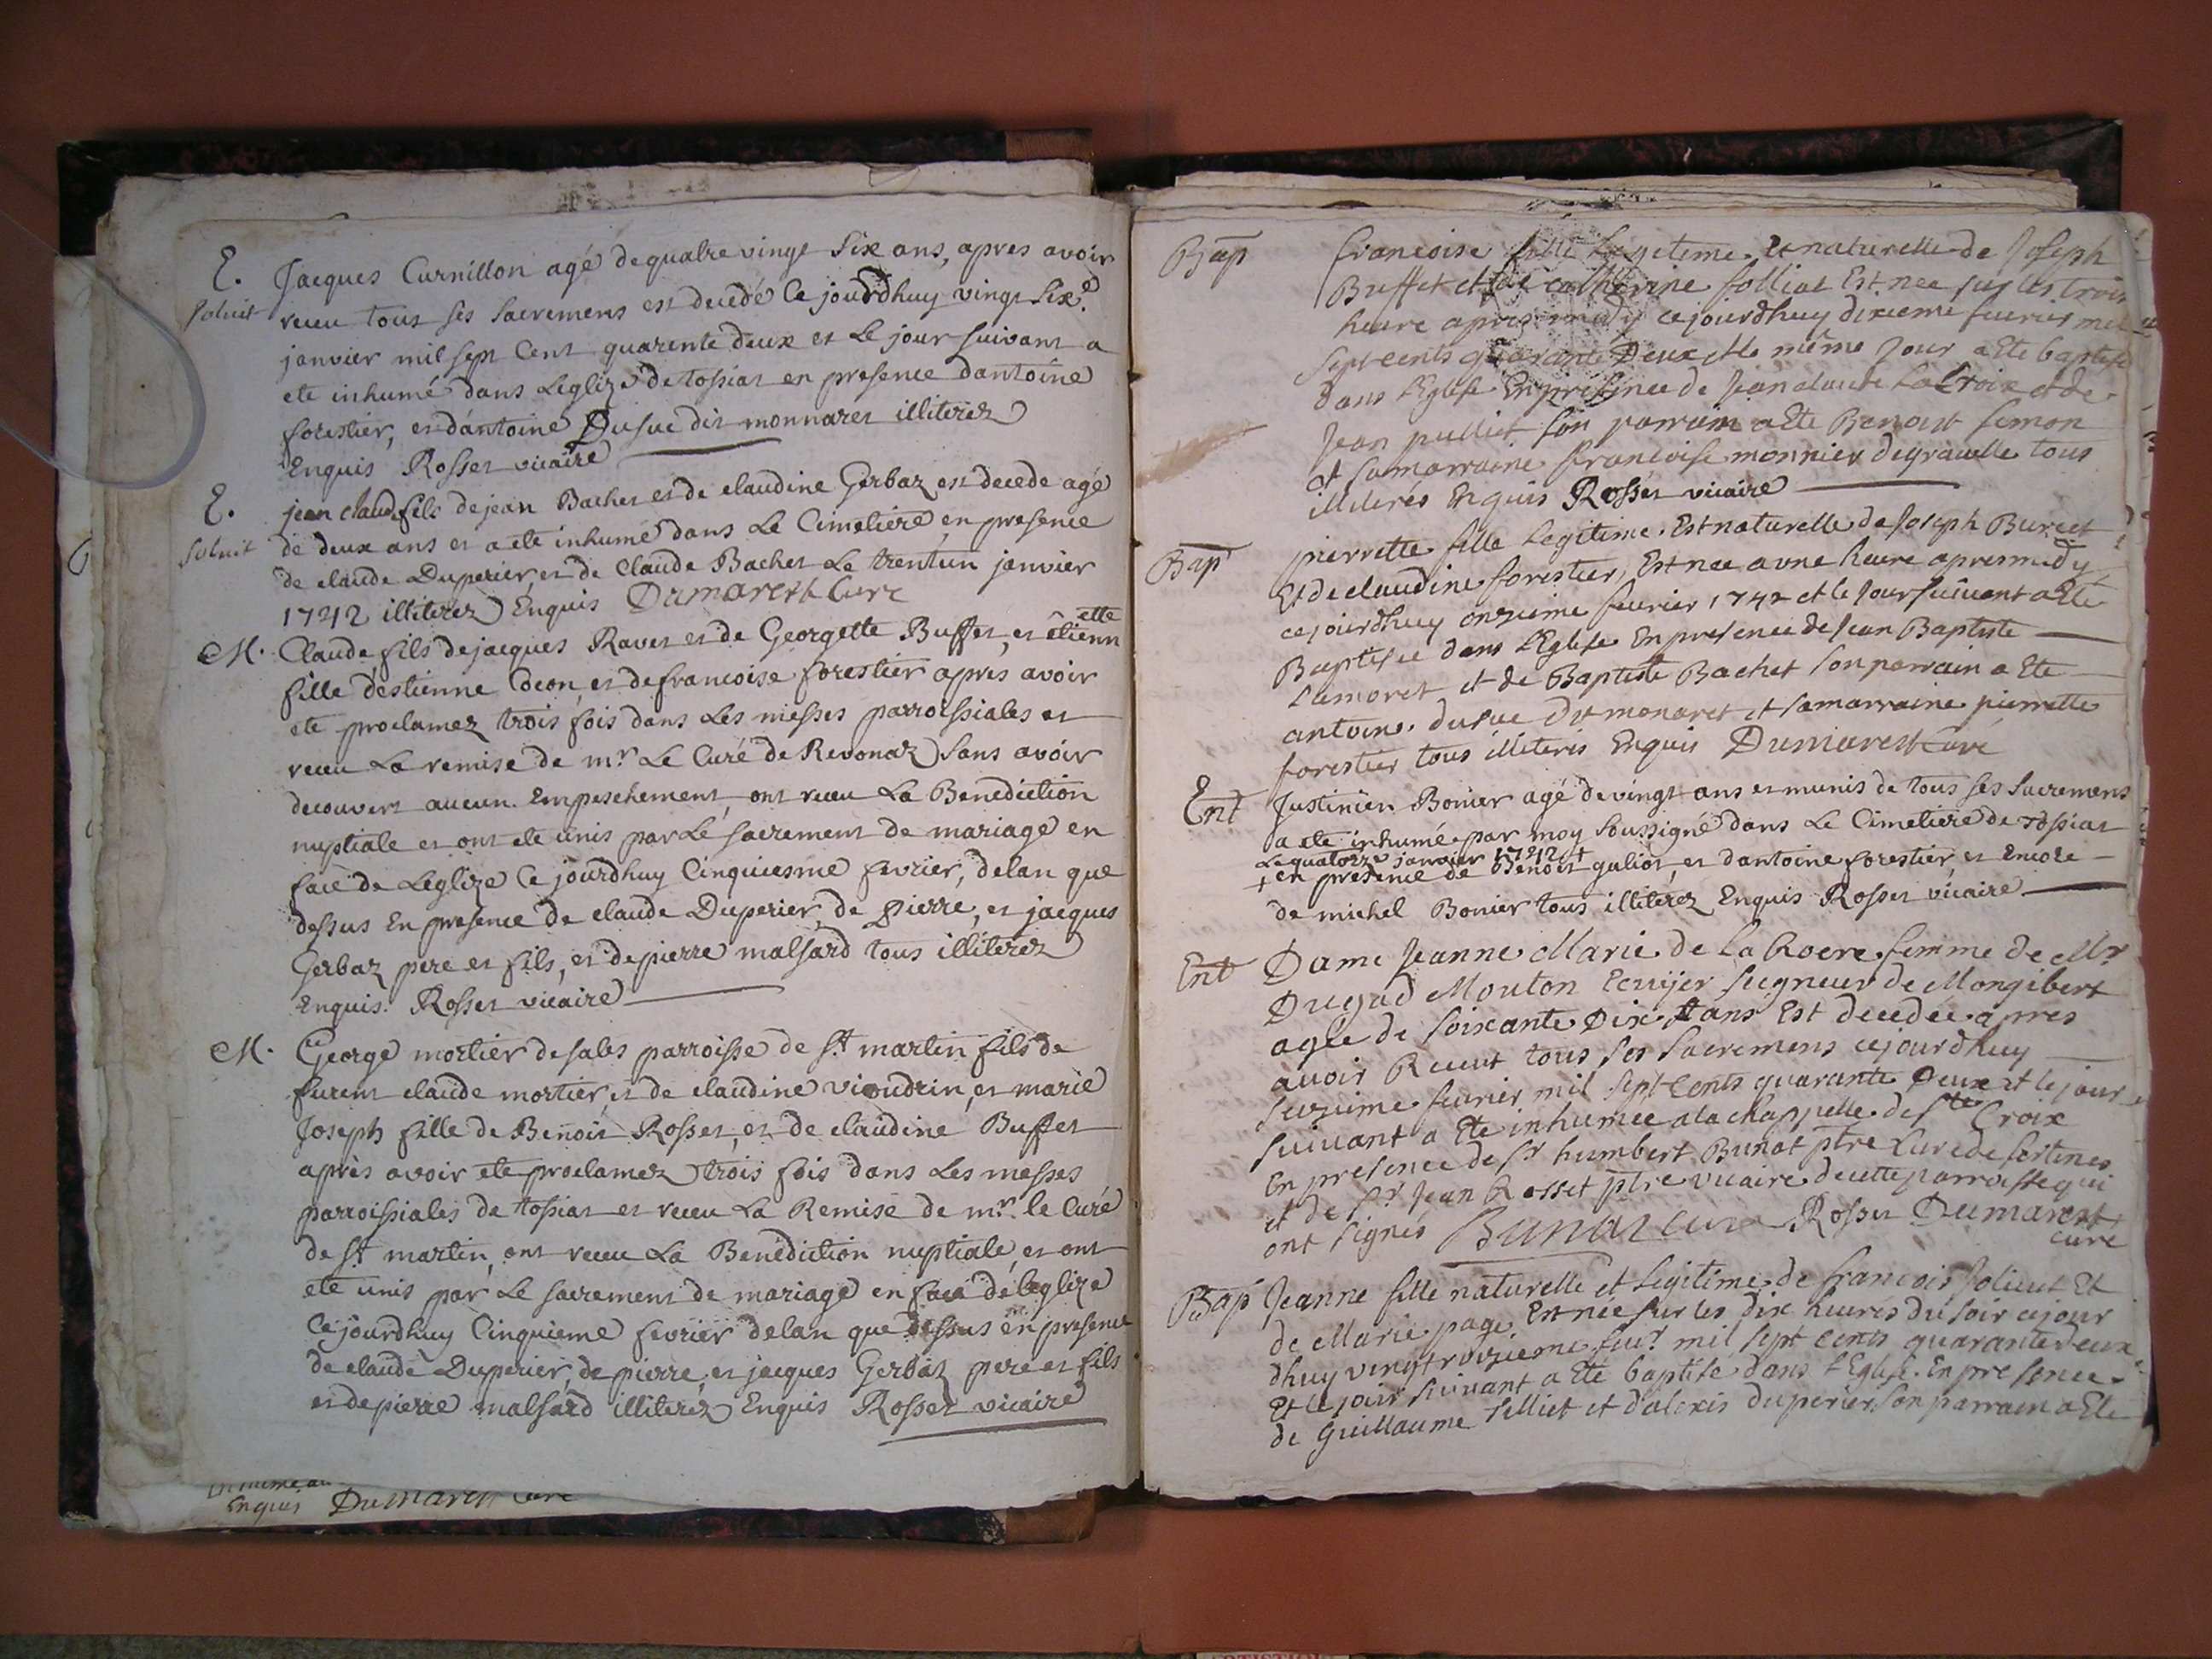 E. Jacques Curnillon agé de quatre vingt six ans, apres avoir
solvit receu tous ses sacremens est decedé ce jourdhuy vingt sixe
janvier mil sept cent quarente deux et le jour suivant a
ete inhumé dans leglize de tossiat en presence dantoine
forestier, et dantoine Dusuc dit monnaret illiterez
Enquis Rosset vicaire
E. jean claude fils de jean Bachet et de claudine Gerbaz est decede agé
solvit de deux ans et a ete inhumé dans le Cimetiere en presence
de claude Duperier, et de claude Bachet le trentun janvier
1742 illiterez Enquis Dumarest Curé
M. Claude fils de jacques Ravet et de Georgette Buffet, et étienn ette
fille destienne deon, et de francoise forestier apres avoir
ete proclamez trois fois dans les messes parroissiales et
receu la remise de mr. le Curé de Revonaz sans avoir
decouvert aucun Empeschement, ont receu la Benediction
nuptiale et ont ete unis par le sacrement de mariage en
face de leglize ce jourdhuy Cinquiesme fevrier, delan que
dessus En presence de claude Duperier, de pierre, et jacques
Gerbaz pere et fils, et de pierre malfard tous illiterez
Enquis. Rosset vicaire
M. George mortier de sales parroisse de st martin fils de
furent claude mortier, et de claudine vioudrin, et marie
Joseph fille de Benoit Rosset, et de claudine Buffet
après avoir ete proclamez trois fois dans les messes
parroissiales de tossiat et receu la Remise de mr. le Curé
de st martin, ont receu la Benediction nuptiale, et ont
ete unis par le sacrement de mariage en face de leglize
Cejourdhuy Cinquieme fevrier delan que dessus en presence
de claude Duperier, de pierre, et jacques Gerbaz pere et fils
et de pierre malfard illiterez Enquis Rosset vicaire
Enquis Dumarest Curé
Bap francoise fille Legiteme et naturelle de Joseph
Buffet et de catherine folliat Est nee sur les trois
heure apres midy cejourdhuy dixieme fevrier mil
sept cents quarante Deux et le même Jour a Ete baptisé
dans l'Eglise En presence de Jean claude LaCroix et de
Jean pulliet son parrain a Ete Benoist simon
et sa marraine francoise monnier degravelle tous
illiterés Enquis Rosset vicaire
Bap pierrette fille Legiteme Est naturelle de Joseph Buret
Et de claudine forestier, Est nee a une heure apres midy
cejourdhuy onzieme fevrier 1742 et le Jour suivant a Ete
Baptisee dans l'Eglise En presence de Jean Baptiste
lamoret et de Baptiste Bachet son parrain a Ete
antoine dusuc dit monaret et sa marraine pierrette
forestier tous illiteris Enquis Dumarest Curé
Ent Justinien Bonier agé de vingt ans et munis de tous ses sacremens
a ete inhumé par moy soussigné dans le Cimetiere de tossiat
Le quatorze janvier 1742 +
+ en presence de Benoit guliot, et dantoine forestier, et Encore
de michel Bonier tous illiterez Enquis Rosset vicaire
Ent Dame Jeanne Marie de la Roere femme de Mr
Dugad Mouton Ecuijer seigneur de Mongibert
agée de soixante Dix ans Est decedée apres
avoir Receut tous ses sacremens cejourdhuy
seizieme fevrier mil sept Cents quarante Deux et le jour
suivant a Ete inhumee a la chappelle de ste Croix
En presence de sr humbert Bunot ptre Cure de sertines
et de sr Jean Rosset ptre vicaire de cette parroisse qui
ont signés Bunot curé Rosset Dumarest
curé
Bap Jeanne fille naturelle et legitime de francois Jolieut Et
de Marie page Est née sur les dix heures du soir cejour
dhuy vingtroizieme fevr. mil sept cents quarantedeux
Et le jour suivant a Ete baptisé dans l'Eglise. En presence
de Guillaume selliet et dalexis duperier, son parrain a Ete